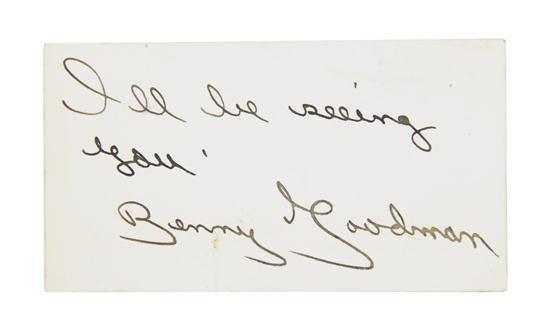 I'll be seeing
you'
Benny Goodman